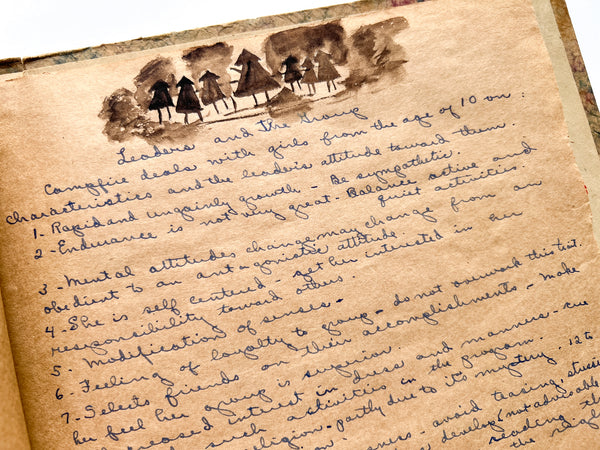 Leaders and the Group
Campfire deals with girls from the age of 10 on:
Characteristics and the leaders attitude toward them.
1. Rapid and ungainly growth - Be sympathetic.
2 - Endurance is not very great - Balance active and
quiet activities.
3 - Mental attitudes change may change from an
obedient to an antagonistic attitude.
4 - She is self centered - get her interested in her
responsibility toward others.
5. Modification of senses -
6. Feeling of loyalty to group - do not overwork this trait.
7 - Selects friends on their accomplishments - make
her feel her group is superior.
increased interest in dress and manner - use
such activities in the program.
religion - partly due to it's mystery. 12 to
ness - avoid teasing,
develop (not advisable
reading
the